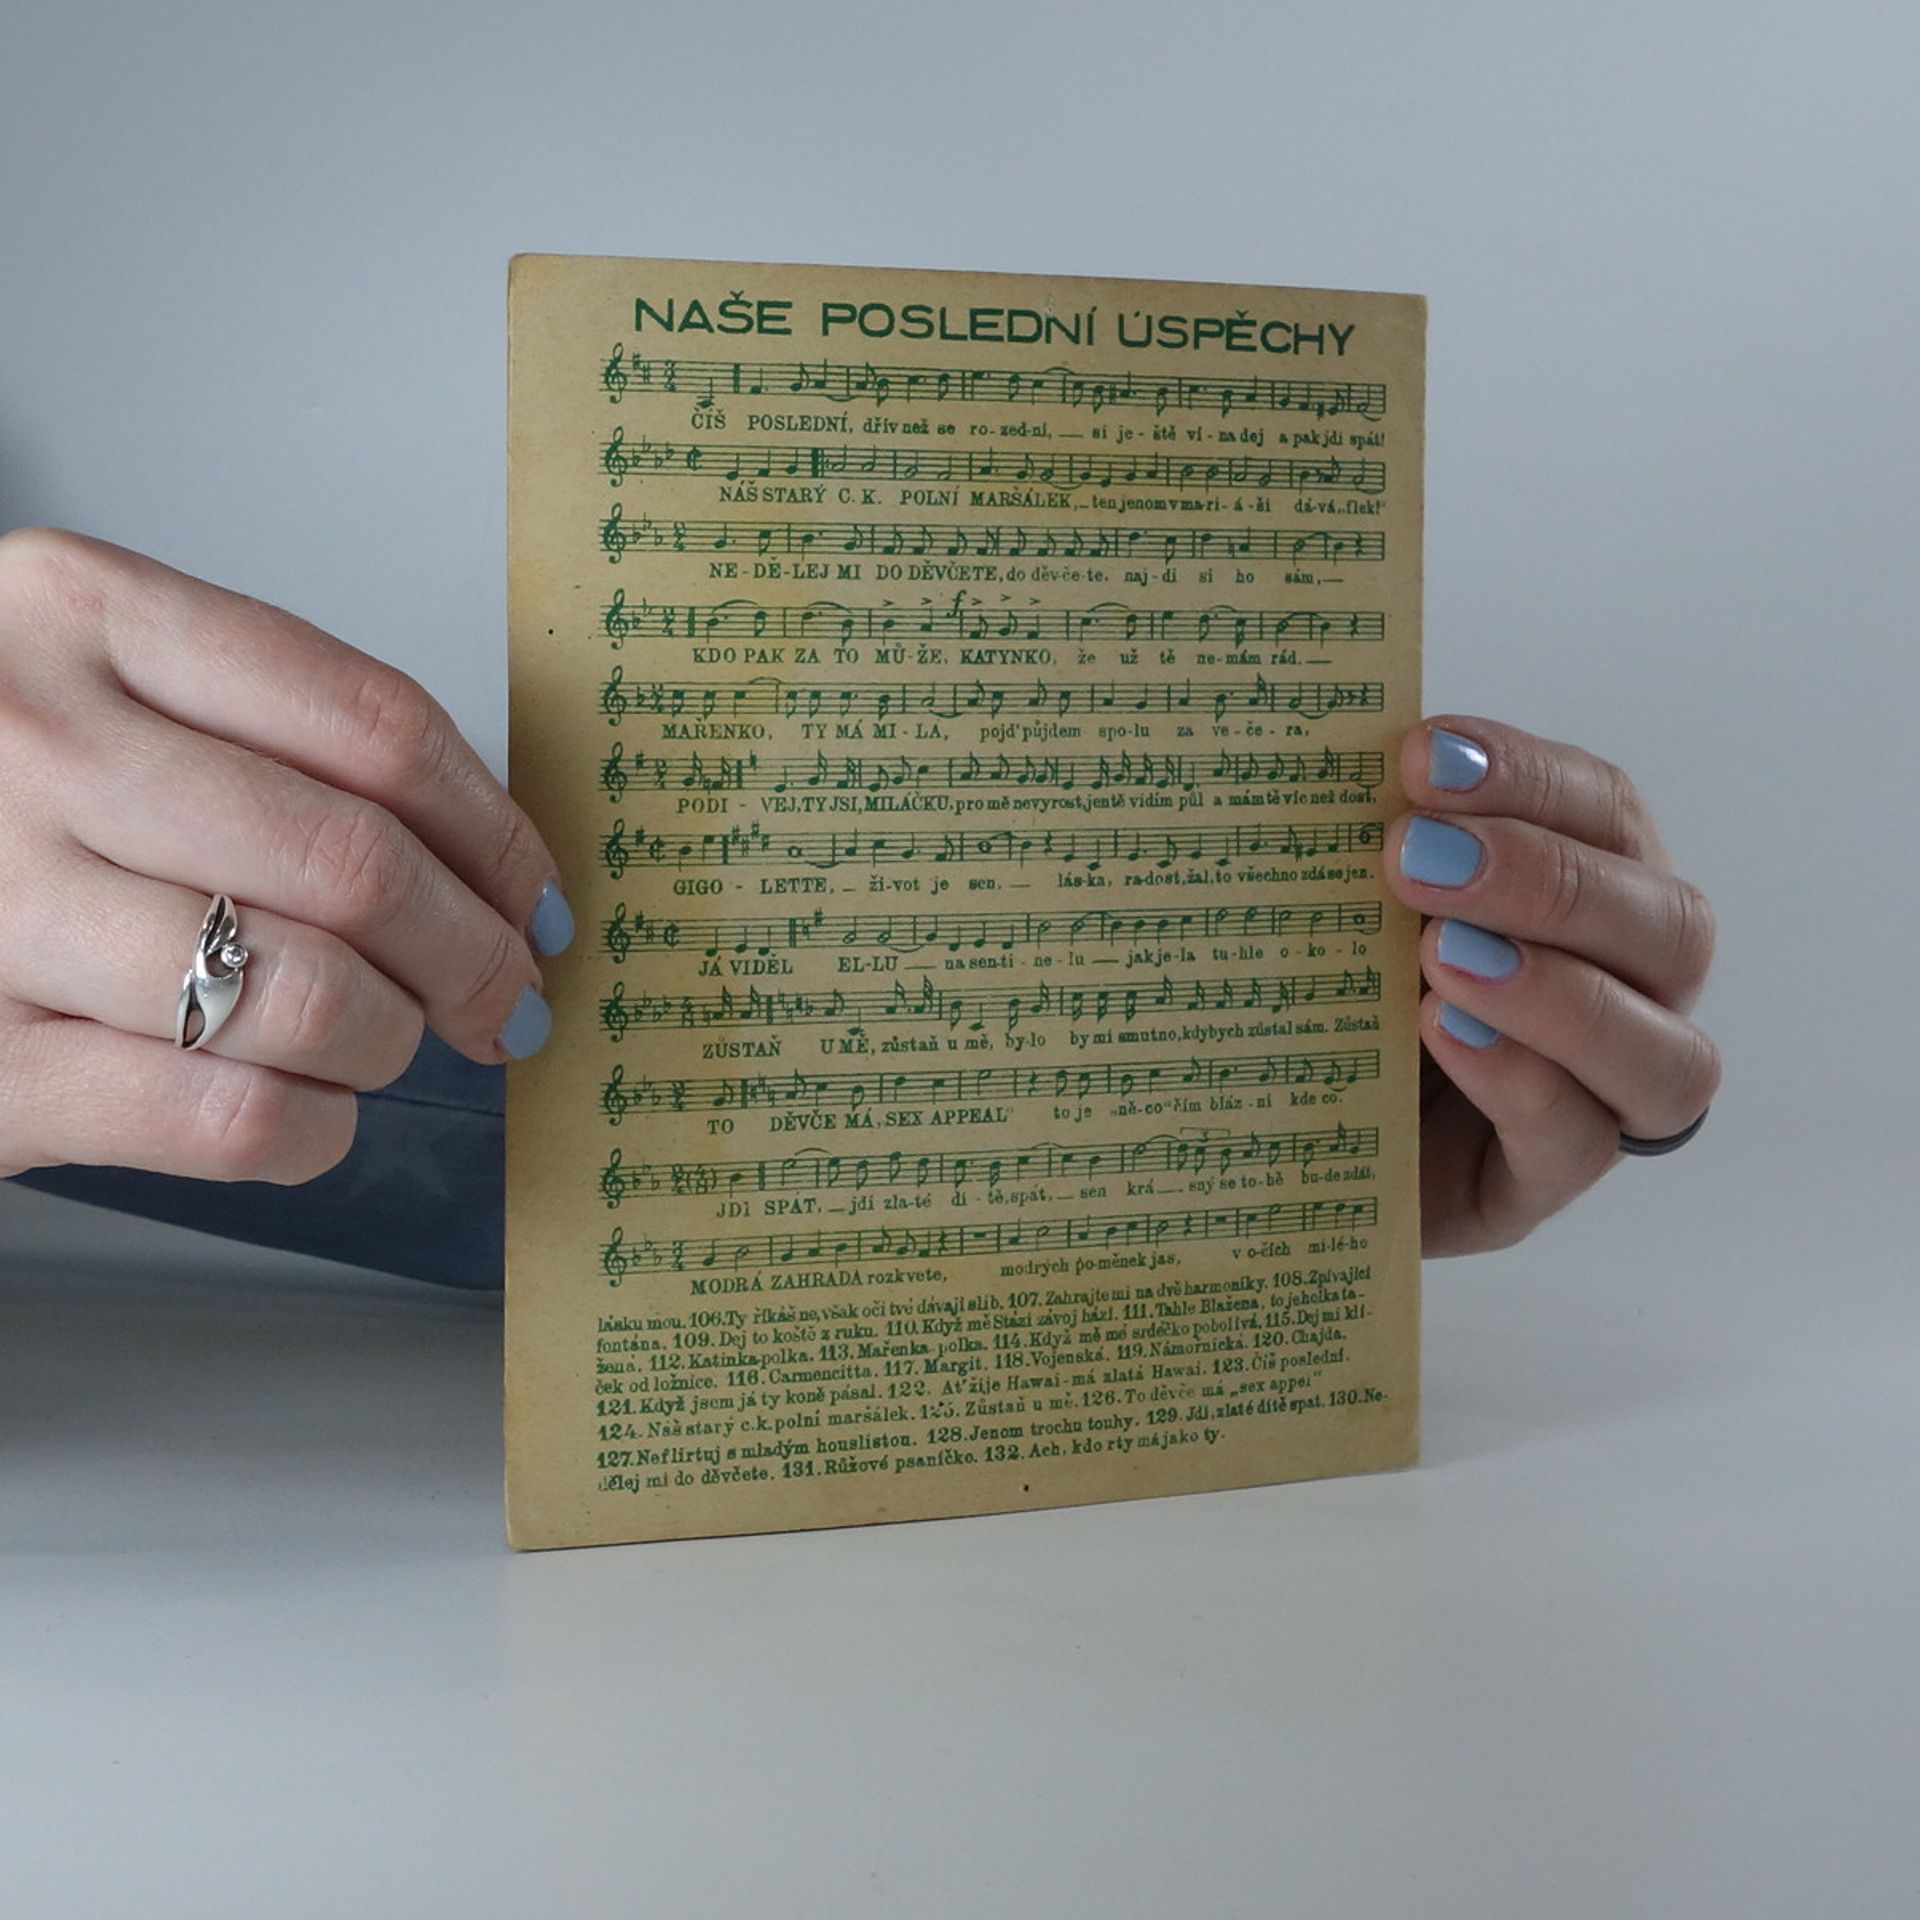 NAŠE POSLEDNÍ ÚSPĚCHY
ČÍŠ POSLEDNÍ, dřív než se ro-zed-ní, — si je-ště ví-na dej a pak jdi spát!
NÁŠ STARÝ C. K. POLNÍ MARŠÁLEK, — ten jenom v ma-ri-á-ši dá-vá „flek!“
NE-DĚ-LEJ MI DO DĚVČETE, do děv-če-te, naj-di si ho sám, —
KDO PAK ZA TO MŮ-ŽE, KATYNKO, že už tě ne-mám rád. —
MAŘENKO, TY MÁ MI-LA, pojď půjdem spo-lu za ve-če-ra,
PODI-VEJ, TY JSI, MILÁČKU, pro mě nevyrost, jen tě vidím půl a mám tě víc než dost.
GIGO-LETTE, — ži-vot je sen, — lás-ka, ra-dost, žal, to všechno zdá se jen.
JÁ VIDĚL EL-LU — na sen-ti-ne-lu — jak je-la tu-hle o-ko-lo
ZŮSTAŇ U MĚ, zůstaň u mě, by-lo by mi smutno, kdybych zůstal sám. Zůstaň
TO DĚVČE MÁ „SEX APPEAL“ to je „ně-co“ čím bláz-ní kde co.
JDI SPÁT, — jdi zla-té dí-tě, spát, — sen krá — sný se to-bě bu-de zdát,
MODRÁ ZAHRADA rozkvete, modrých po-měnek jas, v o-čích mi-lé-ho
lásku mou. 106. Ty říkáš ne, však oči tvé dávají slib. 107. Zahrajte mi na dvě harmoniky. 108. Zpívající
fontána. 109. Dej to koště z ruku. 110. Když mě Stázi závoj hází. 111. Tahle Blažena, to je holka ta-
žená. 112. Katinka polka. 113. Mařenka polka. 114. Když mě mé srdéčko pobolívá. 115. Dej mi klí-
ček od ložnice. 116. Carmencitta. 117. Margit. 118. Vojenská. 119. Námořnická. 120. Chajda.
121. Když jsem já ty koně pásal. 122. Ať žije Hawai - má zlatá Hawai. 123. Číš poslední.
124. Náš starý c. k. polní maršálek. 125. Zůstaň u mě. 126. To děvče má „sex appel“
127. Neflirtuj s mladým houslistou. 128. Jenom trochu touhy. 129. Jdi, zlaté dítě spat. 130. Ne-
dělej mi do děvčete. 131. Růžové psaníčko. 132. Ach, kdo rty má jako ty.